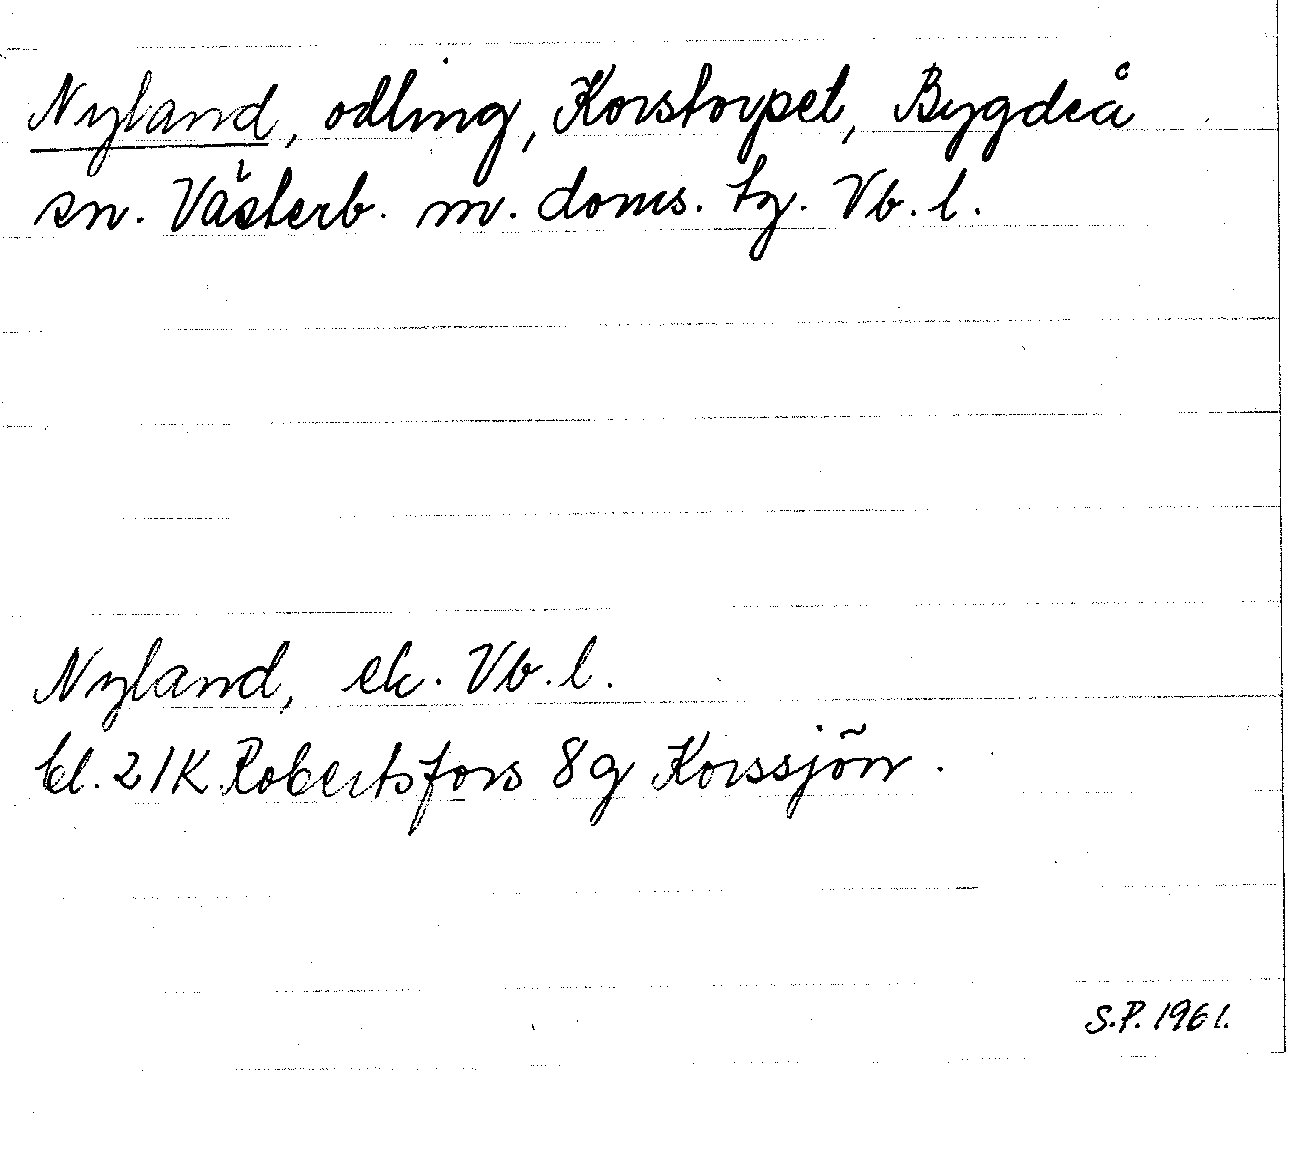 Nyland, odling, Korstorpet, Bygdeå
sn. Västerb. m. doms. tg. Vb. l.
Nyland, ek. Vb. l.
bl. 21K Robertsfors 8g Korssjön.
S.P. 1961.